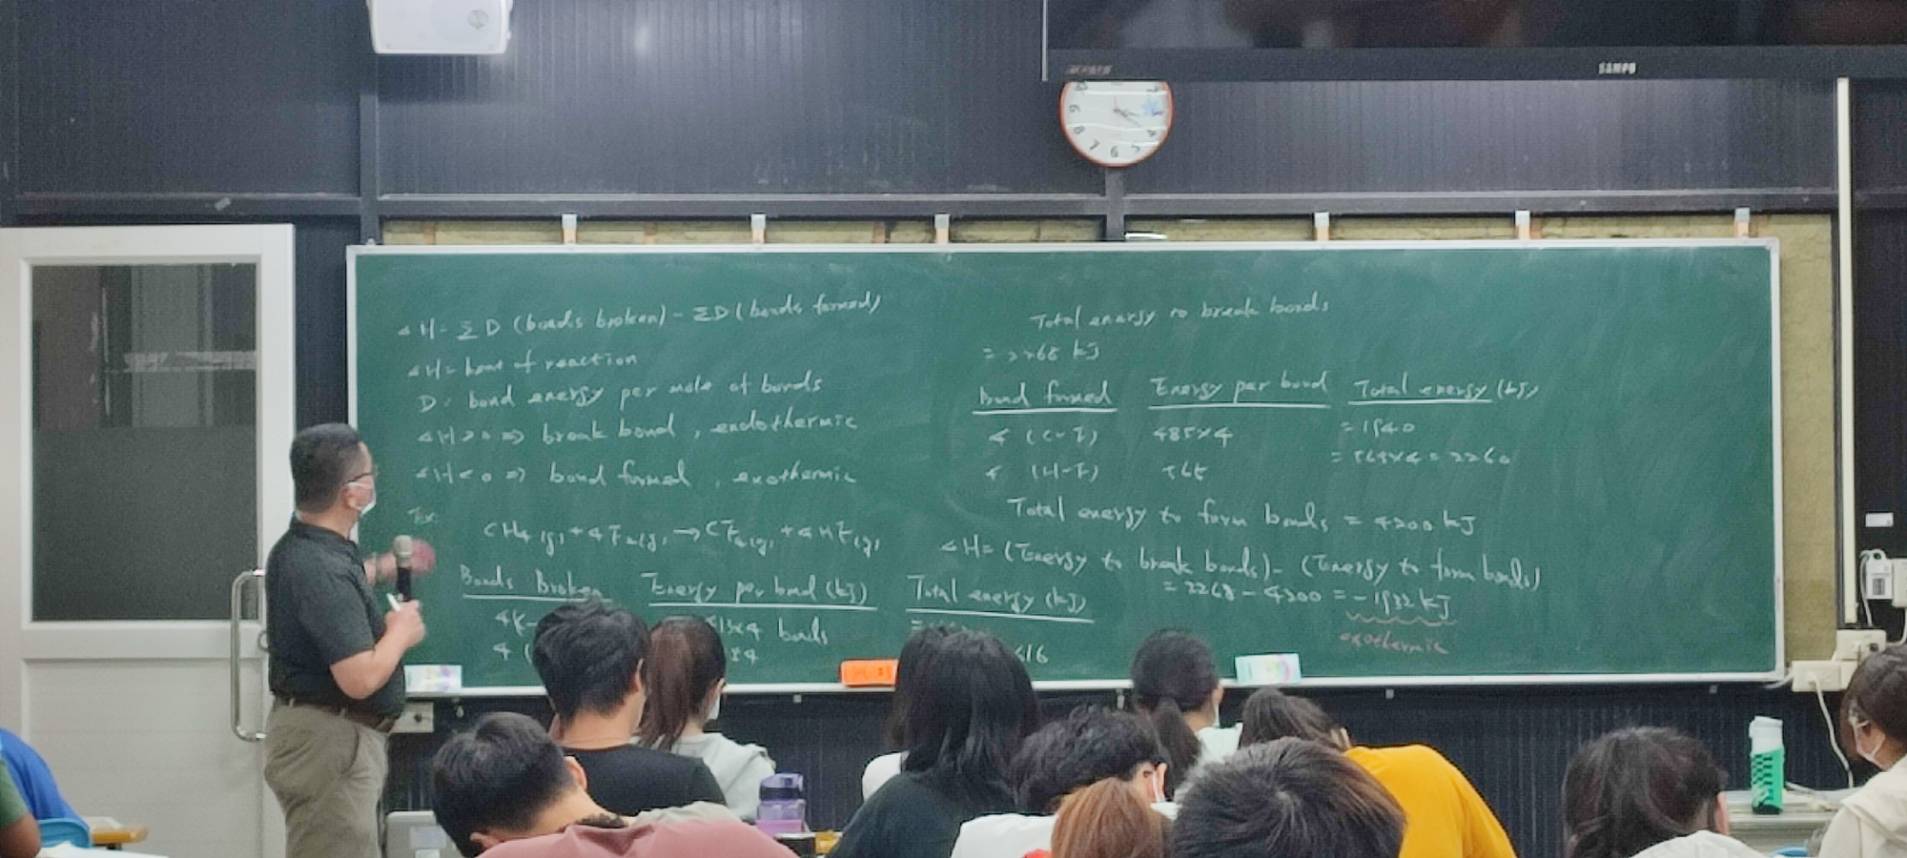 SAMPO
ΔH = ΣD (bonds broken) - ΣD (bonds formed)
ΔH = heat of reaction
D: bond energy per mole of bonds
ΔH > 0 => break bond, endothermic
ΔH < 0 => bond formed, exothermic
Ex:
CH4(g) + 4F2(g) → CF4(g) + 4HF(g)
Bonds Broken Energy per bond (kJ) Total energy (kJ)
bonds
616
Total energy to break bonds
= 2268 kJ
Bond formed Energy per bond Total energy (kJ)
4 (C-F) 485x4 = 1940
4 (H-F) 565 = 565x4 = 2260
Total energy to form bonds = 4200 kJ
ΔH = (Energy to break bonds) - (Energy to form bonds)
= 2268 - 4200 = -1932 kJ
exothermic